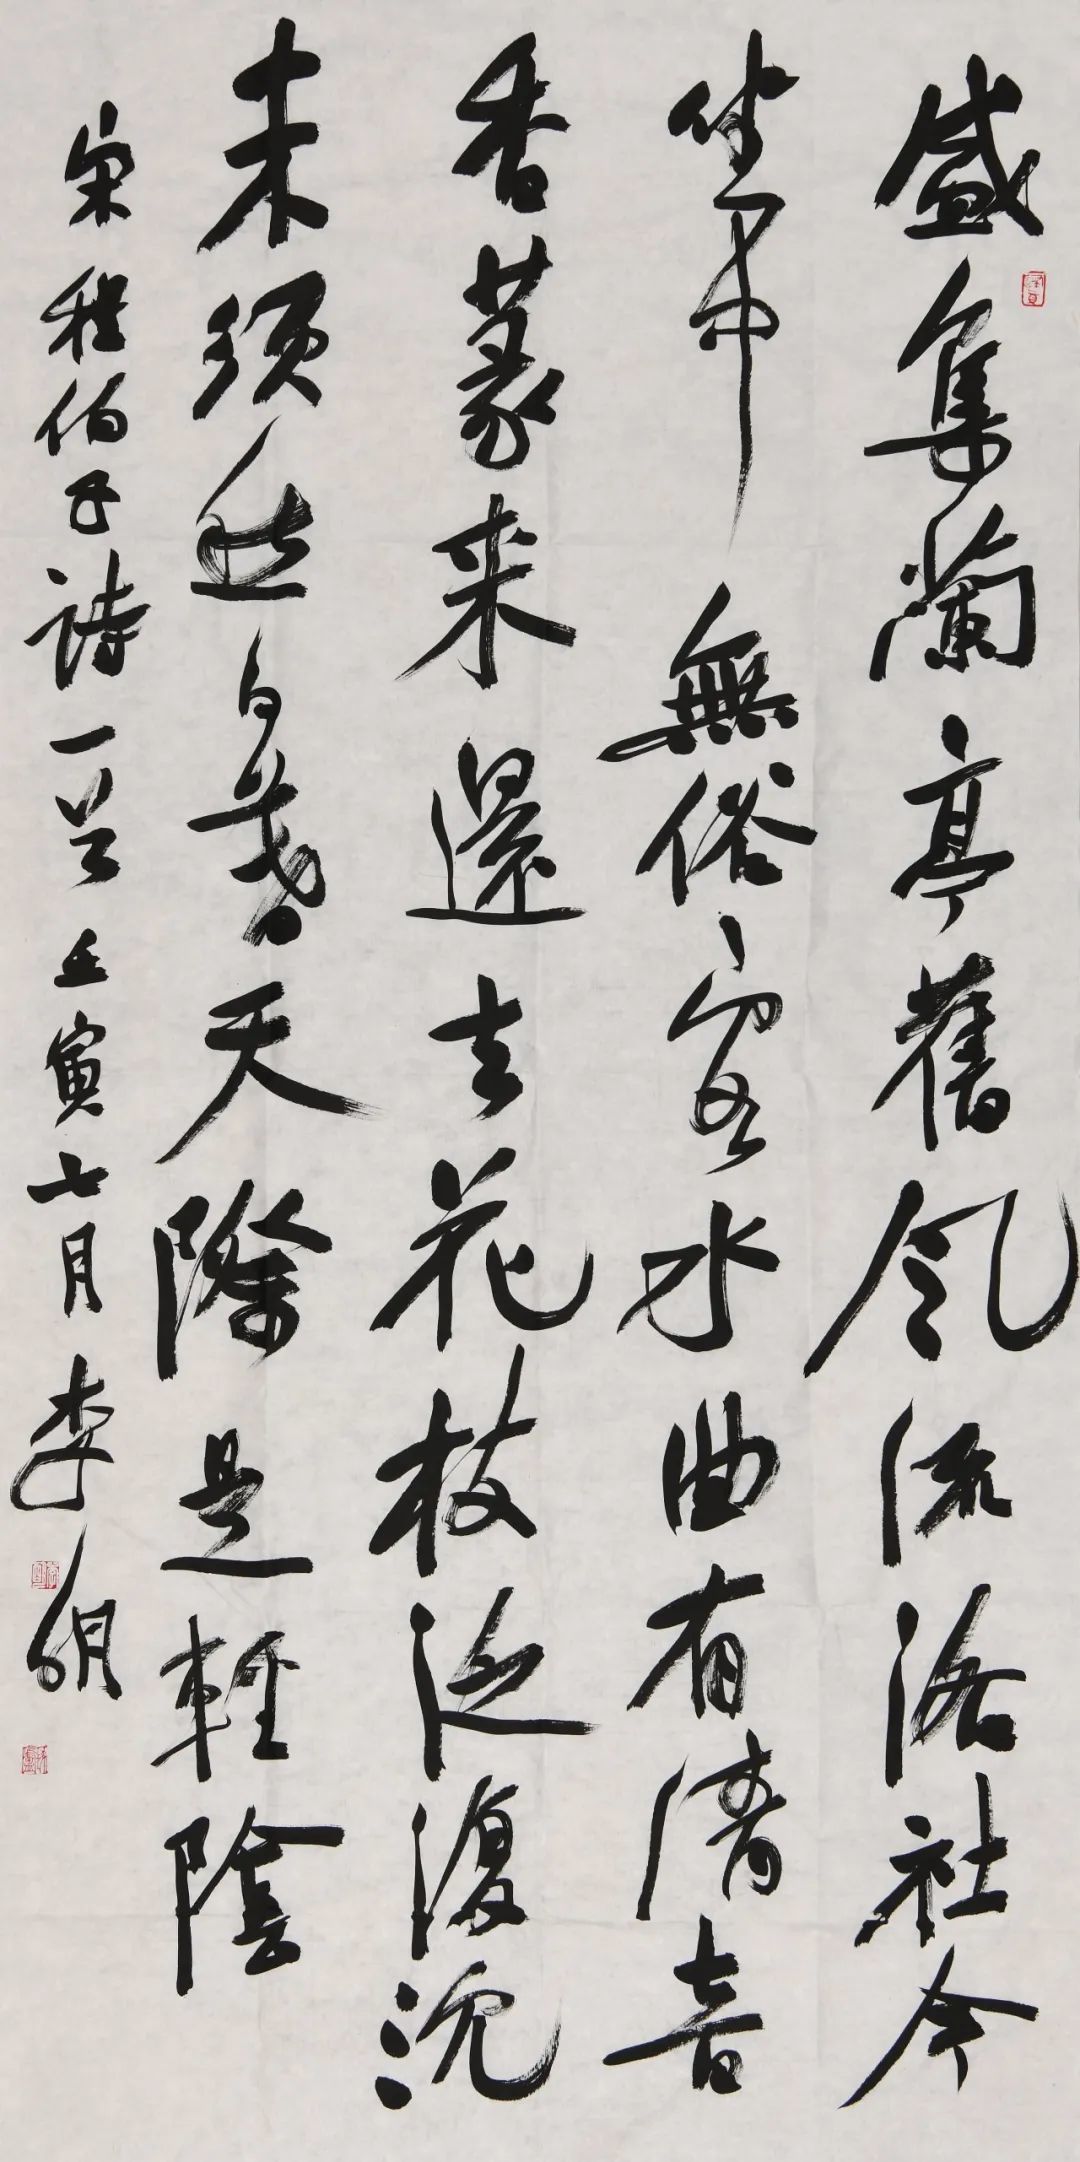 盛集蘭亭舊風流洛社今
坐中無俗客水曲有清音
香篆来還去花枝泛復沈
未須愁日暮天際是輕陰
宋程伯子詩一首壬寅七月李明